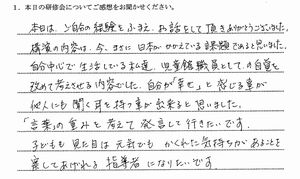 1. 本日の研修会についてご感想をお聞かせください。
本日は、ご自分の経験をふまえ、お話をして頂きありがとうございました。
講演の内容は、今、まさに日本がかかえている課題であると思いました。
自分中心で生活している私達、児童館職員としての自覚を
改めて考えさせる内容でした。自分が「幸せ」と感じる事が
他人にも聞く耳を持つ事が出来ると思いました。
「言葉」の重みを考えて発言して行きたいです。
子どもも見た目は元気でもかくれた気持ちがあることを
察してあげれる指導者になりたいです。